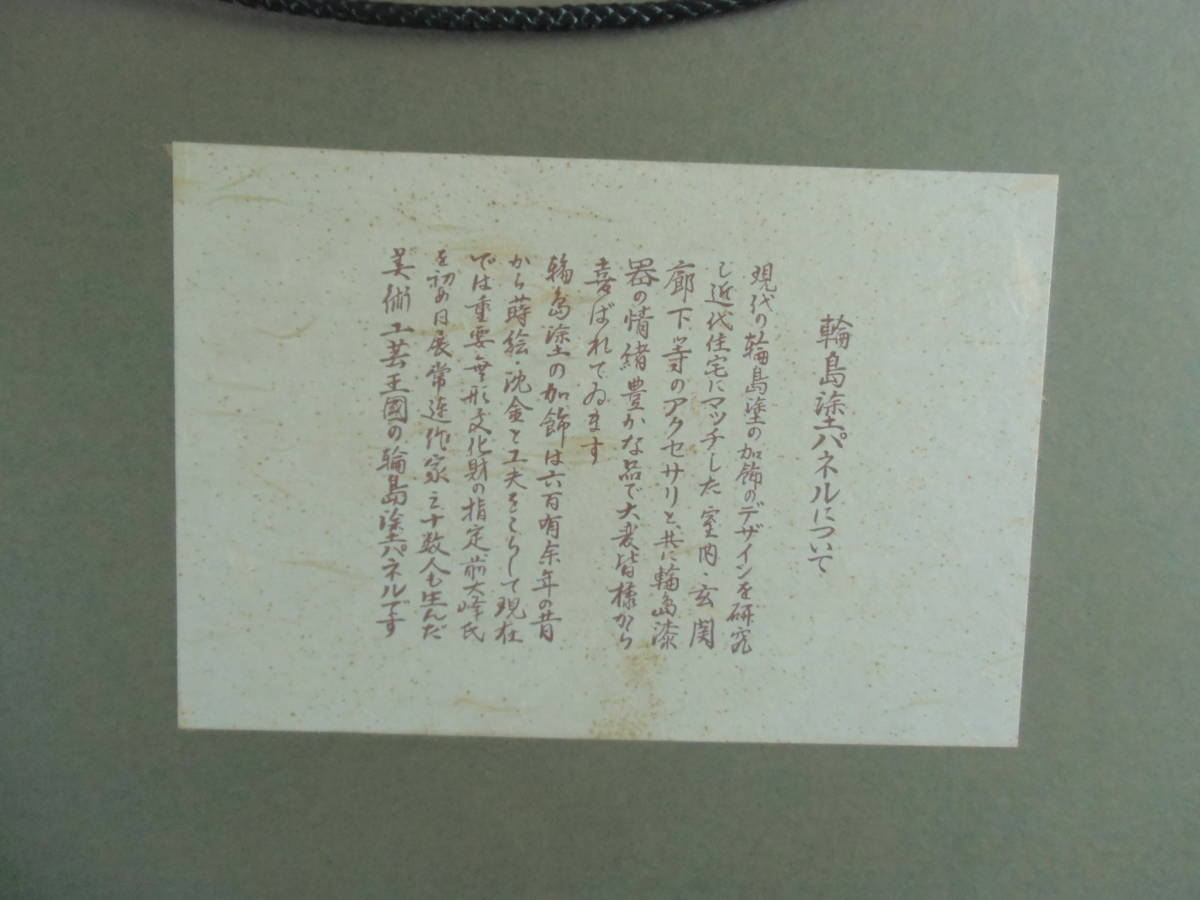 輪島塗パネルについて
現代の輪島塗の加飾のデザインを研究
し近代住宅にマッチした室内・玄関
廊下等のアクセサリと、共に輪島漆
器の情緒豊かな品で大変皆様から
喜ばれてゐます
輪島塗の加飾は六百有余年の昔
から蒔絵・沈金と工夫をこらして現在
では重要無形文化財の指定前大峰氏
を初め日展常連作家三十数人も生んだ
美術工芸王國の輪島塗パネルです